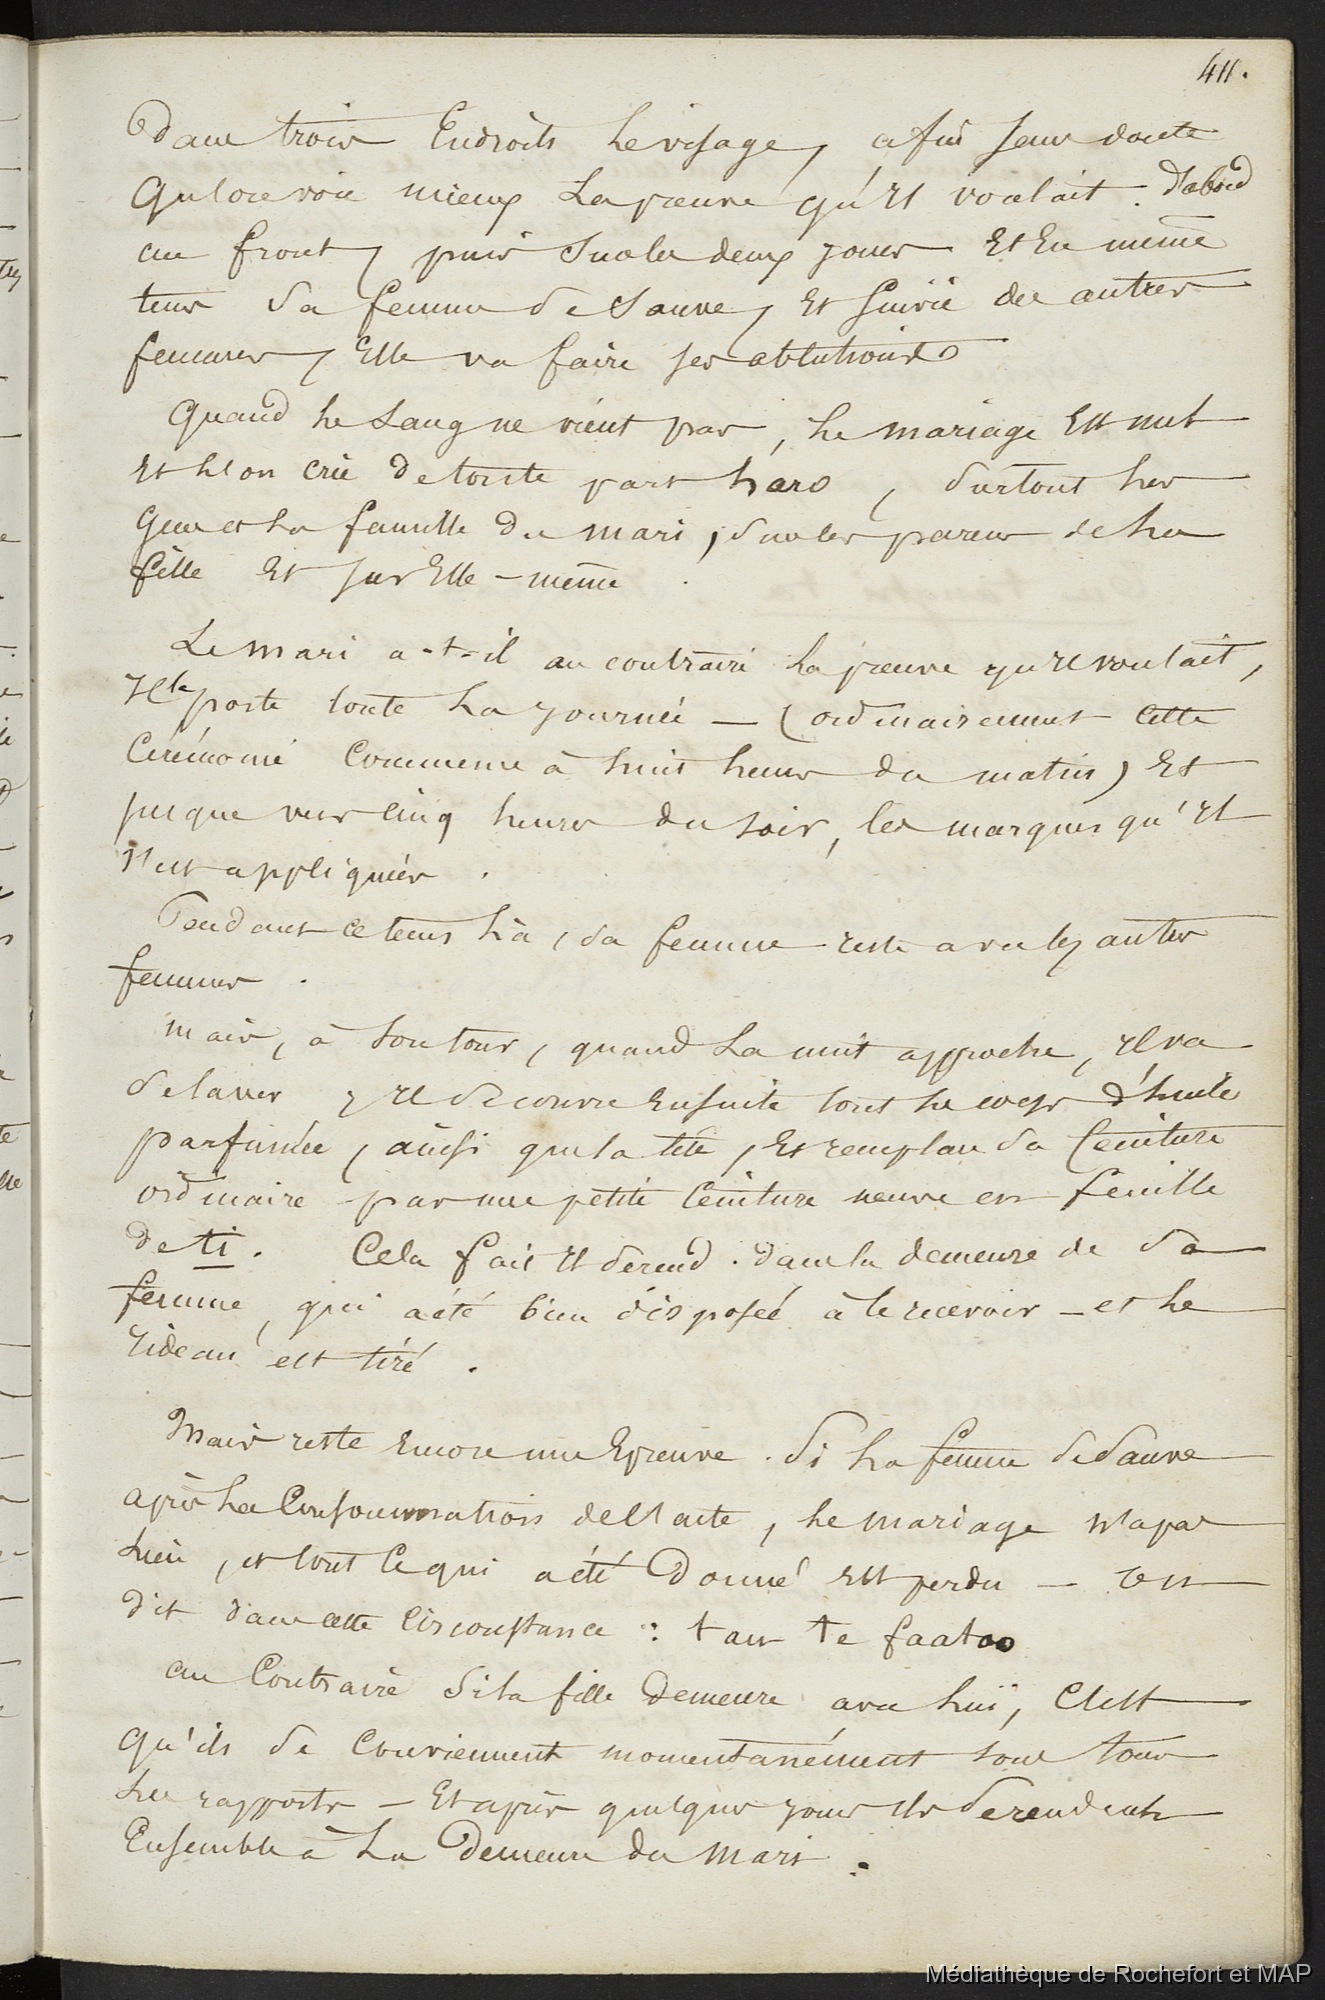 411.
Dans trois Endroits le visage, afin sans doute
Qu'on voie mieux La preuve qu'il voulait. D'abord
au front, puis sur les deux joues Et En même
tems Sa femme se sauve, Et suivie des autres
femmes, Elle va faire ses ablutions
Quand le Sang ne vient pas, le mariage Est nul
Et l'on crie De toute part haro, surtout les
Gens et la famille Du mari, sur les parens de la
fille Et sur Elle-même.
Le mari a-t-il au contraire la preuve qu'il voulait,
Il la porte toute La journée — (ordinairement Cette
Cérémonie Commence à huit heures du matin) Et
jusque vers Cinq heures du soir, les marques qu'Il
s'est appliquées.
Pendant ce tems là, sa femme reste avec les autres
femmes.
mais, à Son tour, quand La nuit approche, Il va
se laver, Il se couvre Ensuite tout le corps d'huile
parfumée, ainsi que la tête, Et remplace Sa Ceinture
ordinaire par une petite Ceinture neuve en feuille
de ti. Cela fait Il se rend. dans la demeure de Sa
femme, qui a été bien disposée à le recevoir — et le
rideau est tiré.
Mais reste Encore une Epreuve. Si La femme se sauve
après La Consommation de l'acte, le mariage n'a pas
Lieu, et tout Ce qui a été Donné Est perdu — On
dit dans cette Circonstance : tau te faatoo
au Contraire Si la fille Demeure avec lui, C'est
Qu'ils se Conviennent momentanément sous tous
Les rapports — Et après quelques jours Ils se rendent
Ensemble à La Demeure du Mari.
Médiathèque de Rochefort et MAP